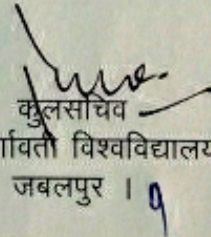 कुलसचिव
र्गावती विश्वविद्यालय
जबलपुर ।